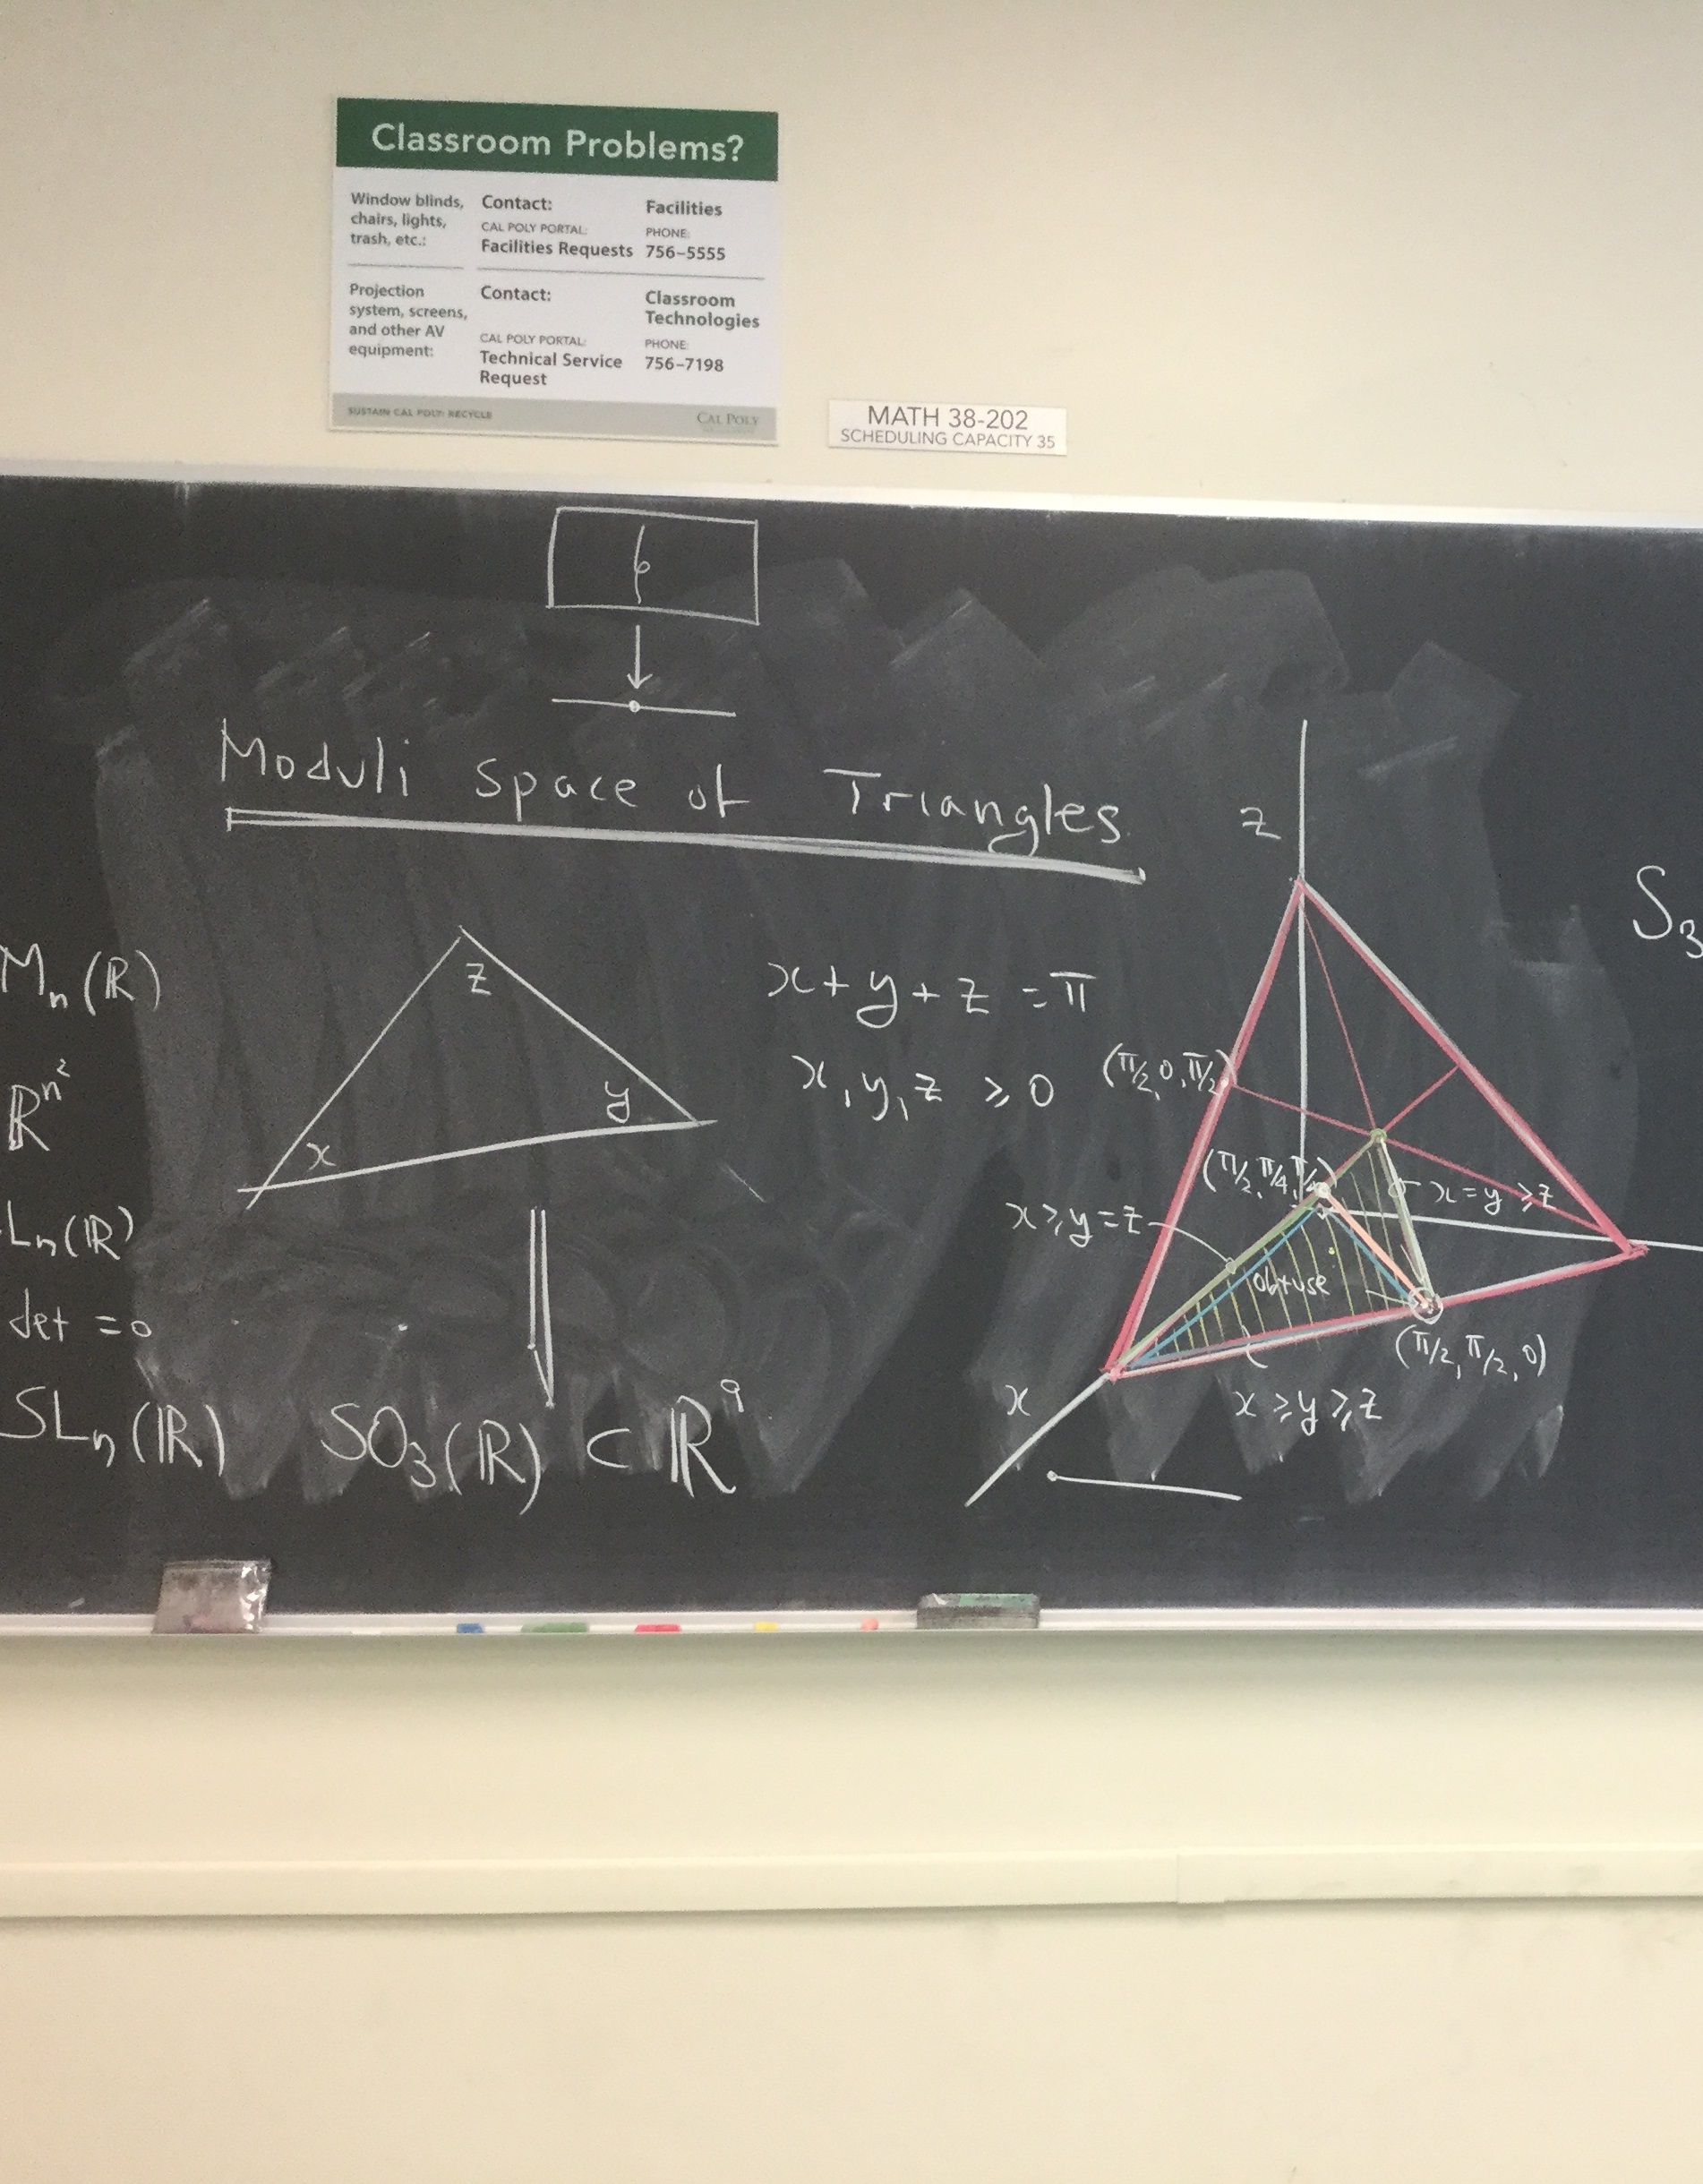 Classroom Problems?
Window blinds, chairs, lights, trash, etc.:
Contact:
CAL POLY PORTAL:
Facilities Requests
Facilities
PHONE:
756–5555
Projection system, screens, and other AV equipment:
Contact:
CAL POLY PORTAL:
Technical Service Request
Classroom Technologies
PHONE:
756–7198
SUSTAIN CAL POLY: RECYCLE
CAL POLY
MATH 38-202
SCHEDULING CAPACITY 35
Moduli Space of Triangles
z
S₃
Mₙ(ℝ)
z
x
y
x+y+z = π
x, y, z ⩾ 0
(π/2, 0, π/2)
ℝⁿ²
(π/2, π/4, π/4)
x = y ⩾ z
x ⩾ y = z
Lₙ(ℝ)
obtuse
det = 0
(π/2, π/2, 0)
x
x ⩾ y ⩾ z
SLₙ(ℝ)
SO₃(ℝ) ⊂ ℝ⁹